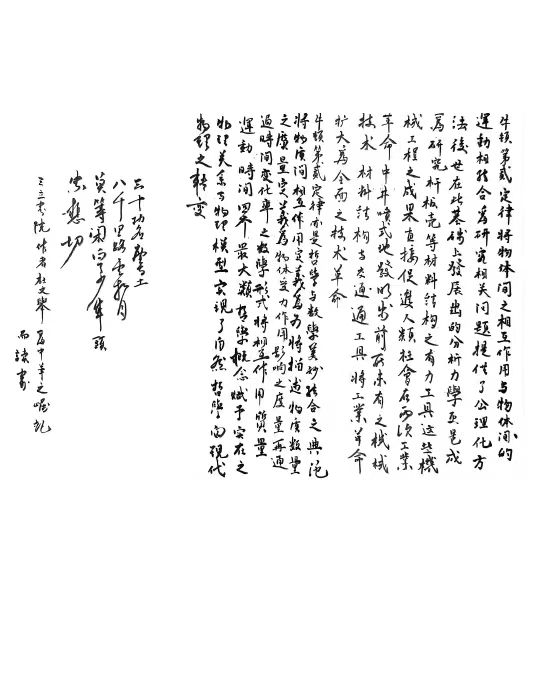 牛頓第貳定律將物体间之相互作用与物体间的
運動相結合为研究相关问题提供了公理化方
法後世在此基礎上發展出的分析力學更是成
爲研究杆板壳等材料结构之有力工具这些機
械工程之成果直接促進人類社會在两次工業
革命中井噴式地發明出前所未有之機械
技术材料结构与交通通工具将工業革命
扩大爲全面之技术革命
牛頓第貳定律亦是哲學与数學美妙結合之典范
將物质间相互作用定義为力将描述物质数量
之质量定義為物体受力作用影响之度量再通
过時间变化率之数學形式将相互作用質量
運動時间四个最大類哲學概念赋予实在之
物理关系与物理模型实现了自然哲學向現代
物理之轉变
三十功名尘与土
八千里路雲和月
莫等闲白了少年頭
空悲切